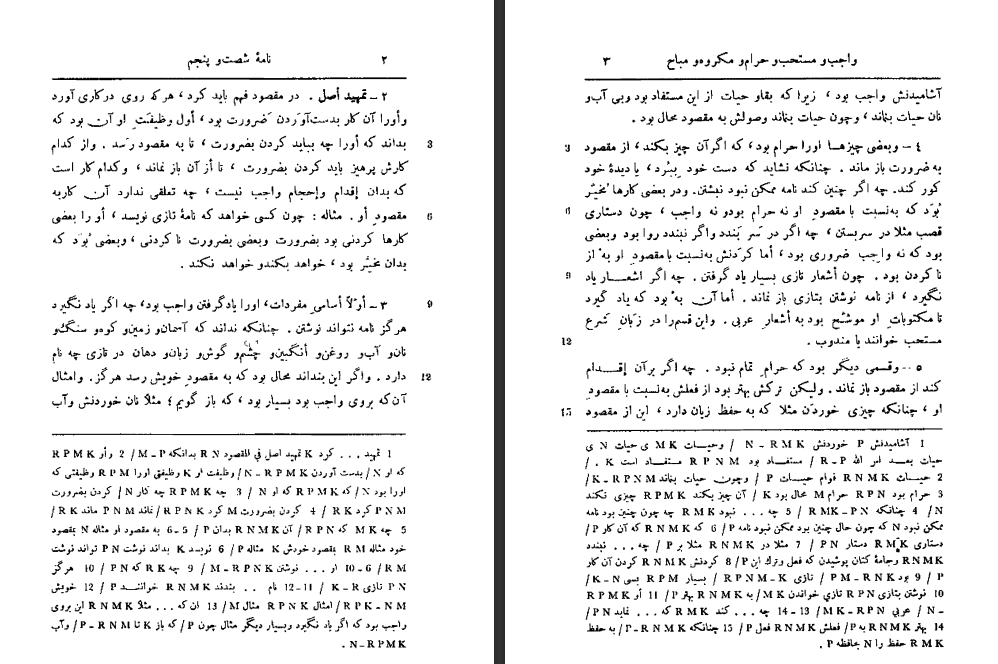 نامهٔ شصت و پنجم ۲
۲ ـ تمهید أصل . در مقصود فهم باید کرد ، هرکه روی درکاری آورد
وأورا آن کار بدست‌آوردن ضرورت بود ، أول وظیفتِ او آن بود که
بداند که أورا چه بباید کردن بضرورت ، تا به مقصود رسد . واز کدام 3
کارش پرهیز باید کردن بضرورت ، تا أز آن باز نماند ، وکدام کار است
که بدان إقدام وإحجام واجب نیست ، چه تعلقی ندارد آن کاربه
مقصودِ أو . مثاله : چون کسی خواهد که نامهٔ تازی نویسد ، أو را بعضی 6
کارها کردنی بود بضرورت وبعضی بضرورت ناکردنی ، وبعضی بُوَد که
بدان مخیَّر بود ، خواهد بکندو خواهد نکند .
۳ ـ أولاً أسامی مفردات، اورا یادگرفتن واجب بود، چه اگر یاد نگیرد 9
هرگز نامه نتواند نوشتن . چنانکه نداند که آسمان‌و زمین‌و کوه‌و سنگ‌و
نان‌و آب‌و روغن‌و أنگبین‌و چشم‌و گوش‌و زبان‌و دهان در تازی چه نام
دارد . واگر این بنداند محال بود که به مقصودِ خویش رسد هرگز . وامثال 12
آن‌که بروی واجب بود بسیار بود ، که باز گویم ؛ مثلاً نان خوردنش وآب
1 تمهید ... کرد K تمهید اصل فی المقصود RN بدانکه M-P / 2 وأو RPMK
که او N / بدست آوردن N-RPMK / وظیفت او K وظیفتی اورا RPM وظیفتی که
اورا بود N / که RPMK که او N / 3 چه RPMK چه کار N / کردن بضرورت
PNM کرد RK / 4 کردن بضرورت M کرد RPNK / نماند PNM ماند RK /
5 چه MK که RPN / آن RNMK بدان P / 5-6 به مقصود او مثاله N بقصود
خود مثاله RM بقصود خودش K مثاله P / 6 نویسد K بداند نوشت PN تواند نوشت
RM / 6-10 او ... نوشتن M-RPNK / 9 چه RK که PN / 10 هرگز
PN تازی K-R / 11-12 نام .. بندند RNMK خواننــد P / 12 خویش
RPK-NM / امثال RPNK مثال M / 13 آن که ... مثلاً RNMK این بروی
واجب بود که اگر یاد نگیرد وبسیار دیگر مثال چون P / که باز K تا P-RNM / وآب
N-RPMK .
واجب‌و مستحب‌و حرام‌و مکروه‌و مباح ۳
آشامیدنش واجب بود ، زیرا که بقاو حیات از این مستفاد بود وبی آب‌و
نان حیات بنماند ، وچون حیات بنماند وصولش به مقصود محال بود .
٤ ـ وبعضی چیزهـا اورا حرام بود، که اگر آن چیز بکند، از مقصود 3
به ضرورت باز ماند . چنانکه نشاید که دست خود ببُرد ، یا دیدهٔ خود
کور کند. چه اگر چنین کند نامه ممکن نبود نبشتن. ودر بعضی کارها مُخیَّر
بُوَد که به‌نسبت با مقصودِ او نه حرام بودو نه واجب ، چون دستاری 6
قصب مثلا در سربستن ، چه اگر در سر بندد واگر نبندد روا بود وبعضی
بود که نه واجب ضروری بود ، أما کردنش به‌نسبت با مقصودِ او به‌ْ از
ناکردن بود . چون أشعار تازی بسیار یاد گرفتن . چه اگر اشعـــار یاد 9
نگیرد ، از نامه نوشتن بتازی باز نماند . أما آن به‌ْ بود که یاد گیرد
تا مکتوباتِ او موشَّح بود به أشعارِ عربی . واین قسم را در زبانِ شرع
مستحب خوانند یا مندوب . 12
٥ ـ وقسمی دیگر بود که حرامِ تمام نبود . چه اگر برآن إقــدام
کند از مقصود باز نماند . ولیکن ترکش بهتر بود از فعلش به‌نسبت با مقصودِ
او ، چنانکه چیزی خوردن مثلا که به حفظ زیان دارد ، این از مقصود 15
1 آشامیدنش P خوردنش N-RMK / وحیــات MK ی حیات N ی
حیات بعــد امر الله R-P / مستفــاد بود RPNM مستفــاد است K . /
2 حیــات RNMK قوام حیــات P / وچون حیات بنماند K-RPNM /
3 حرام بود RPN حرام M محال بود K / آن چیز بکند RPMK چیزی نکند
N / 4 چنانکه RMK-PN / 5 چه ... نبود RMK چه چون چنین بود نامه
ممکن نبود N که چون حال چنین بود ممکن نبود نامه P / 6 که RNMK که آن کار P /
دستاری RMK دستار PN / 7 مثلا در RNMK مثلا بر P / چه ... نبندد
RNMK وجامهٔ کتان پوشیدن که فعل وترك این P / 8 کردنش RNMK کردن آن کار
P / 9 بود PM-RNK / تازی RPNM-K / بسیار RPM بسی K-N /
10 نوشتن بتازی RPN تازی خواندن MK / به RNMK بهتر P / 11 أو RPMK
N- / عربی MK-RPN / 13-14 چه ... کند RMK که ... نماید PN /
14 بهتر RNMK به P / فعلش RNMK فعل P / 15 چنانکه P-RNMK / به حفظ
RMK حفظ را N بحافظه P .